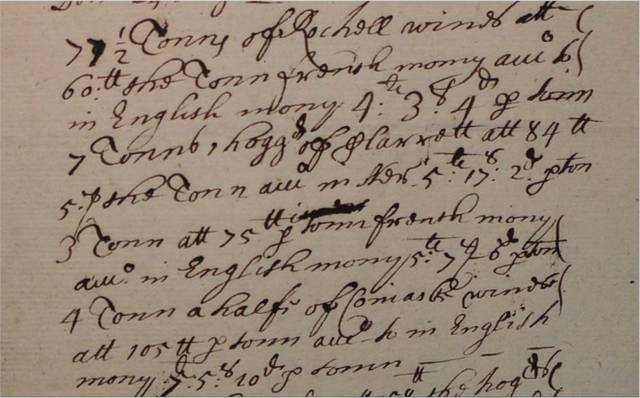 77 1/2 Tonns of Rochell wines att
60:tt the Tonn french mony auo to
in English mony 4:te 3:s 4:d p tonn
7 Tonns 1 hoggd of Clarrett att 84 tt
5:s the Tonn auo in 5:te 17:s 2:d p ton
3 Tonn att 75 tt p tonn french mony
auo: in English mony 5:te 7:s 6:d p ton
4 Tonn a halfe of wines
att 105 tt p tonn auo to in English
mony 7: 5:s 10:d p tonn
the hogd